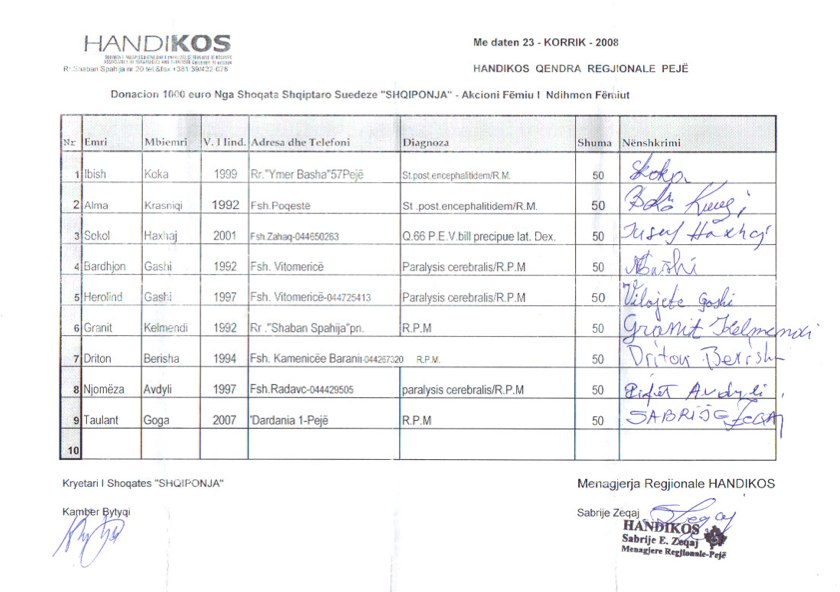 HANDIKOS
Me daten 23 - KORRIK - 2008
Rr.Shaban Spahija nr 20 tel.&fax +381 39/432 076
HANDIKOS QENDRA REGJIONALE PEJË
Donacion 1000 euro Nga Shoqata Shqiptaro Suedeze "SHQIPONJA" - Akcioni Fëmiu I Ndihmon Fëmiut
Nr Emri Mbiemri V. Lind. Adresa dhe Telefoni Diagnoza Shuma Nënshkrimi
1 Ibish Koka 1999 Rr."Ymer Basha"57Pejë St.post.encephalitidem/R.M. 50
2 Alma Krasniqi 1992 Fsh.Poqestë St .post.encephalitidem/R.M. 50
3 Sokol Haxhaj 2001 Fsh.Zahaq-044650263 Q.66 P.E.V.bill precipue lat. Dex. 50 Jusuf Haxhaj
4 Bardhjon Gashi 1992 Fsh. Vitomericë Paralysis cerebralis/R.P.M 50
5 Herolind Gashi 1997 Fsh. Vitomericë-044725413 Paralysis cerebralis/R.P.M 50 Vilojete Gashi
6 Granit Kelmendi 1992 Rr ."Shaban Spahija"pn. R.P.M 50 Granit Kelmendi
7 Driton Berisha 1994 Fsh. Kamenicëe Baranii-044267320 R.P.M. 50 Driton Berisha
8 Njomëza Avdyli 1997 Fsh.Radavc-044429505 paralysis cerebralis/R.P.M 50 Avdyli
9 Taulant Goga 2007 'Dardania 1-Pejë R.P.M 50 SABRIJE Zeqaj
10
Kryetari I Shoqates "SHQIPONJA"
Menagjerja Regjionale HANDIKOS
Kamber Bytyqi
Sabrije Zeqaj
HANDIKOS
Sabrije E. Zeqaj
Menagjere Regjionale-Pejë